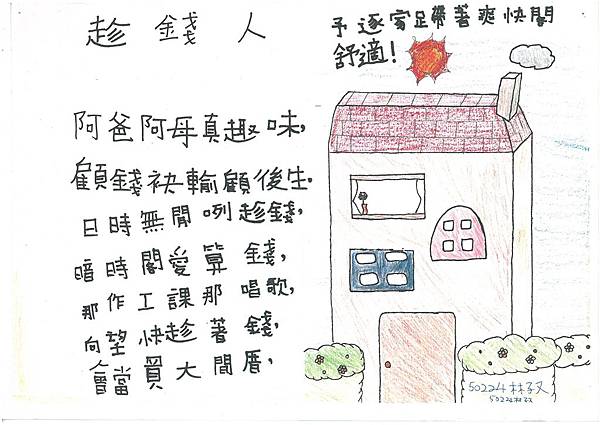 趁錢人
阿爸阿母真趣味,
顧錢袂輸顧後生.
日時無閒咧趁錢,
暗時閣愛算錢,
那作工課那唱歌,
向望快趁著錢,
會當買大間厝,
予逐家足帶著爽快閣
舒適!
50224林子又
50224林子又